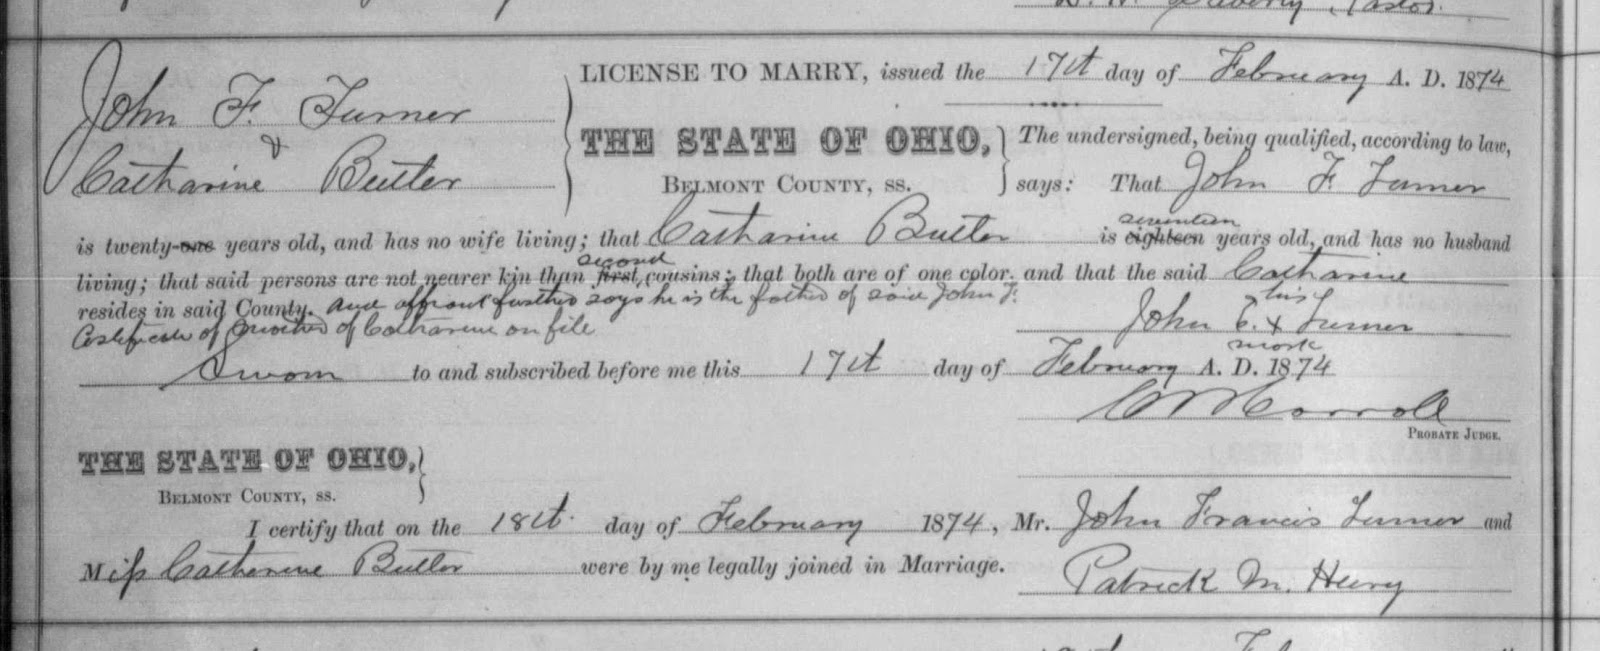 Pastor.
John F. Turner
&
Catharine Butler
LICENSE TO MARRY, issued the 17th day of February A. D. 1874
THE STATE OF OHIO,
BELMONT COUNTY, ss.
The undersigned, being qualified, according to law,
says: That John F. Turner
seventeen
is twenty-one years old, and has no wife living; that Catharine Butler is eighteen years old, and has no husband
second
living; that said persons are not nearer kin than first cousins; that both are of one color. and that the said Catharine
resides in said County. and affiant further says he is the father of said John F.
Certificate of of Catharine on file
his
John C. X Turner
mark
Sworn to and subscribed before me this 17th day of February A. D. 1874
Carroll
PROBATE JUDGE.
THE STATE OF OHIO,
BELMONT COUNTY, ss.
I certify that on the 18th day of February 1874, Mr. John Francis Turner and
Miss Catherine Butler were by me legally joined in Marriage.
Patrick M. Heery